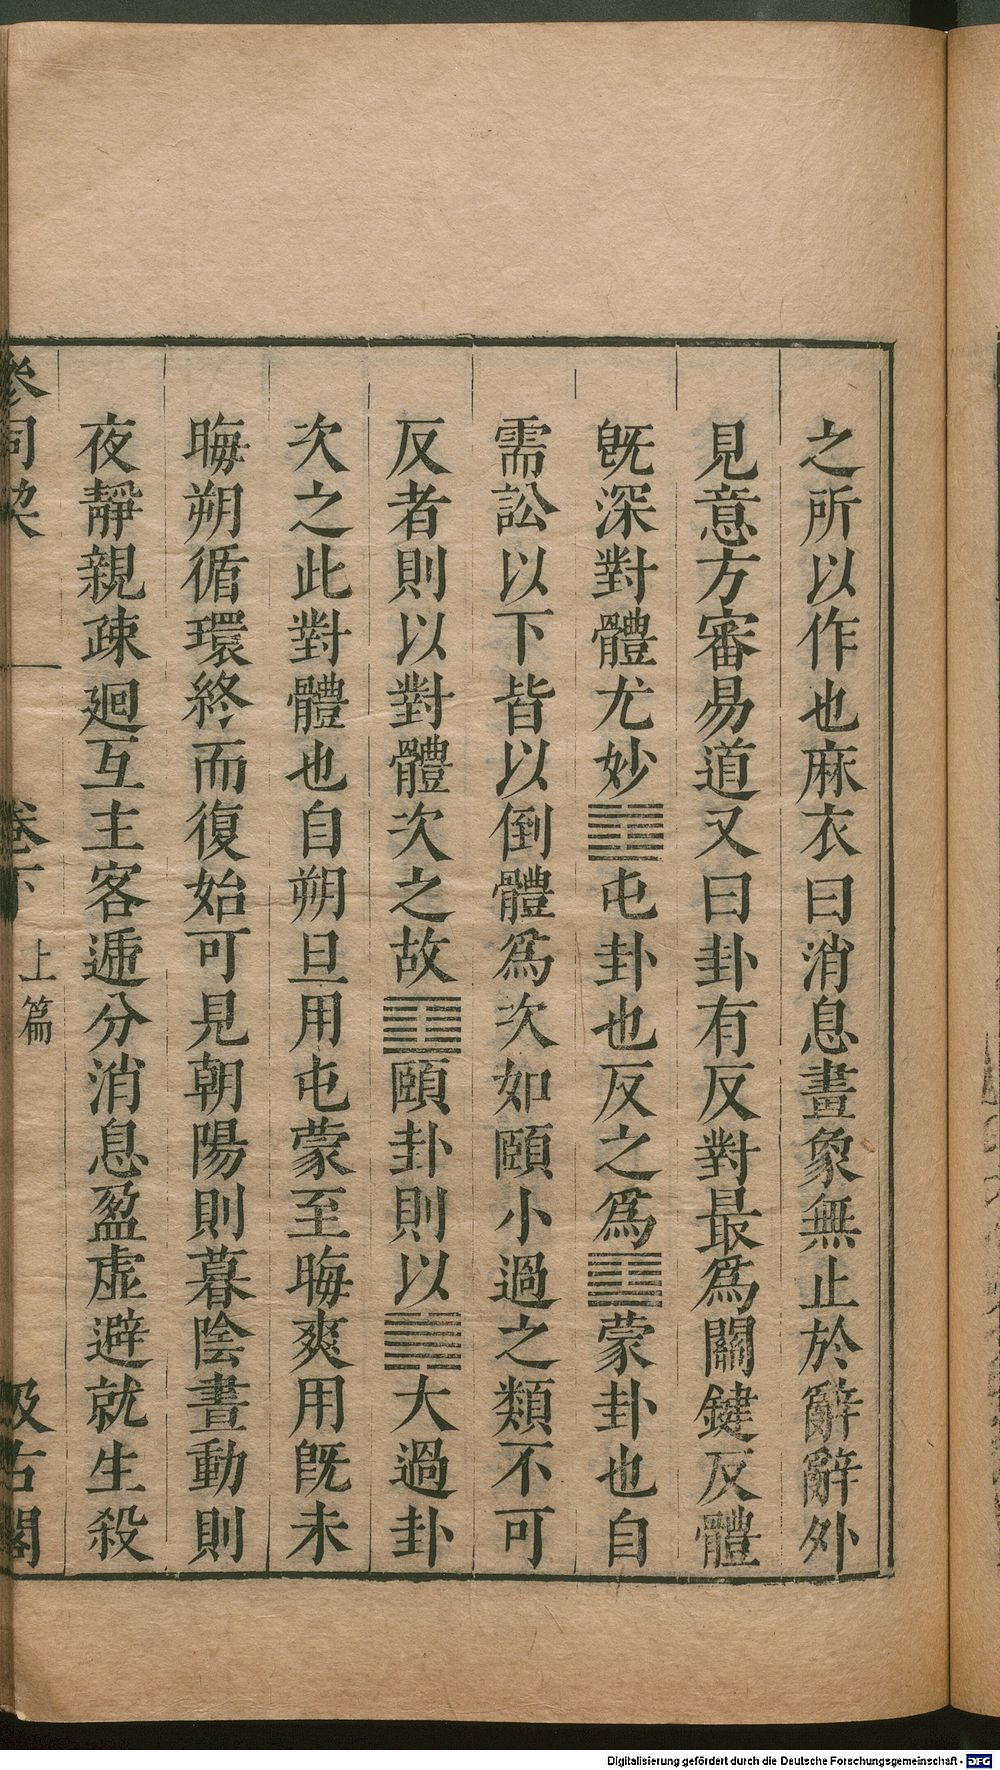 之所以作也麻衣曰消息畫象無止於辭辭外
見意方審易道又曰卦有反對最爲關鍵反體
旣深對體尤妙䷂屯卦也反之爲䷃蒙卦也自
需訟以下皆以倒體爲次如頤小過之類不可
反者則以對體次之故䷚頤卦則以䷛大過卦
次之此對體也自朔旦用屯蒙至晦爽用旣未
晦朔循環終而復始可見朝陽則暮陰晝動則
夜靜親疎廻互主客遞分消息盈虛避就生殺
參同契 卷下 上篇 汲古閣
Digitalisierung gefördert durch die Deutsche Forschungsgemeinschaft - DFG